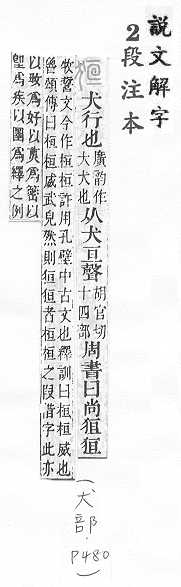 說文解字
2段注本
狟 犬行也廣韵作大犬也从犬亘聲胡官切十四部周書曰尚狟狟
牧誓文今作桓桓許用孔壁中古文也釋訓曰桓桓威也
魯頌傳曰桓桓威武皃然則狟狟者桓桓之叚借字此亦
以爲好以莫爲以
堲爲疾以圛爲釋之例
(犬部.P480)